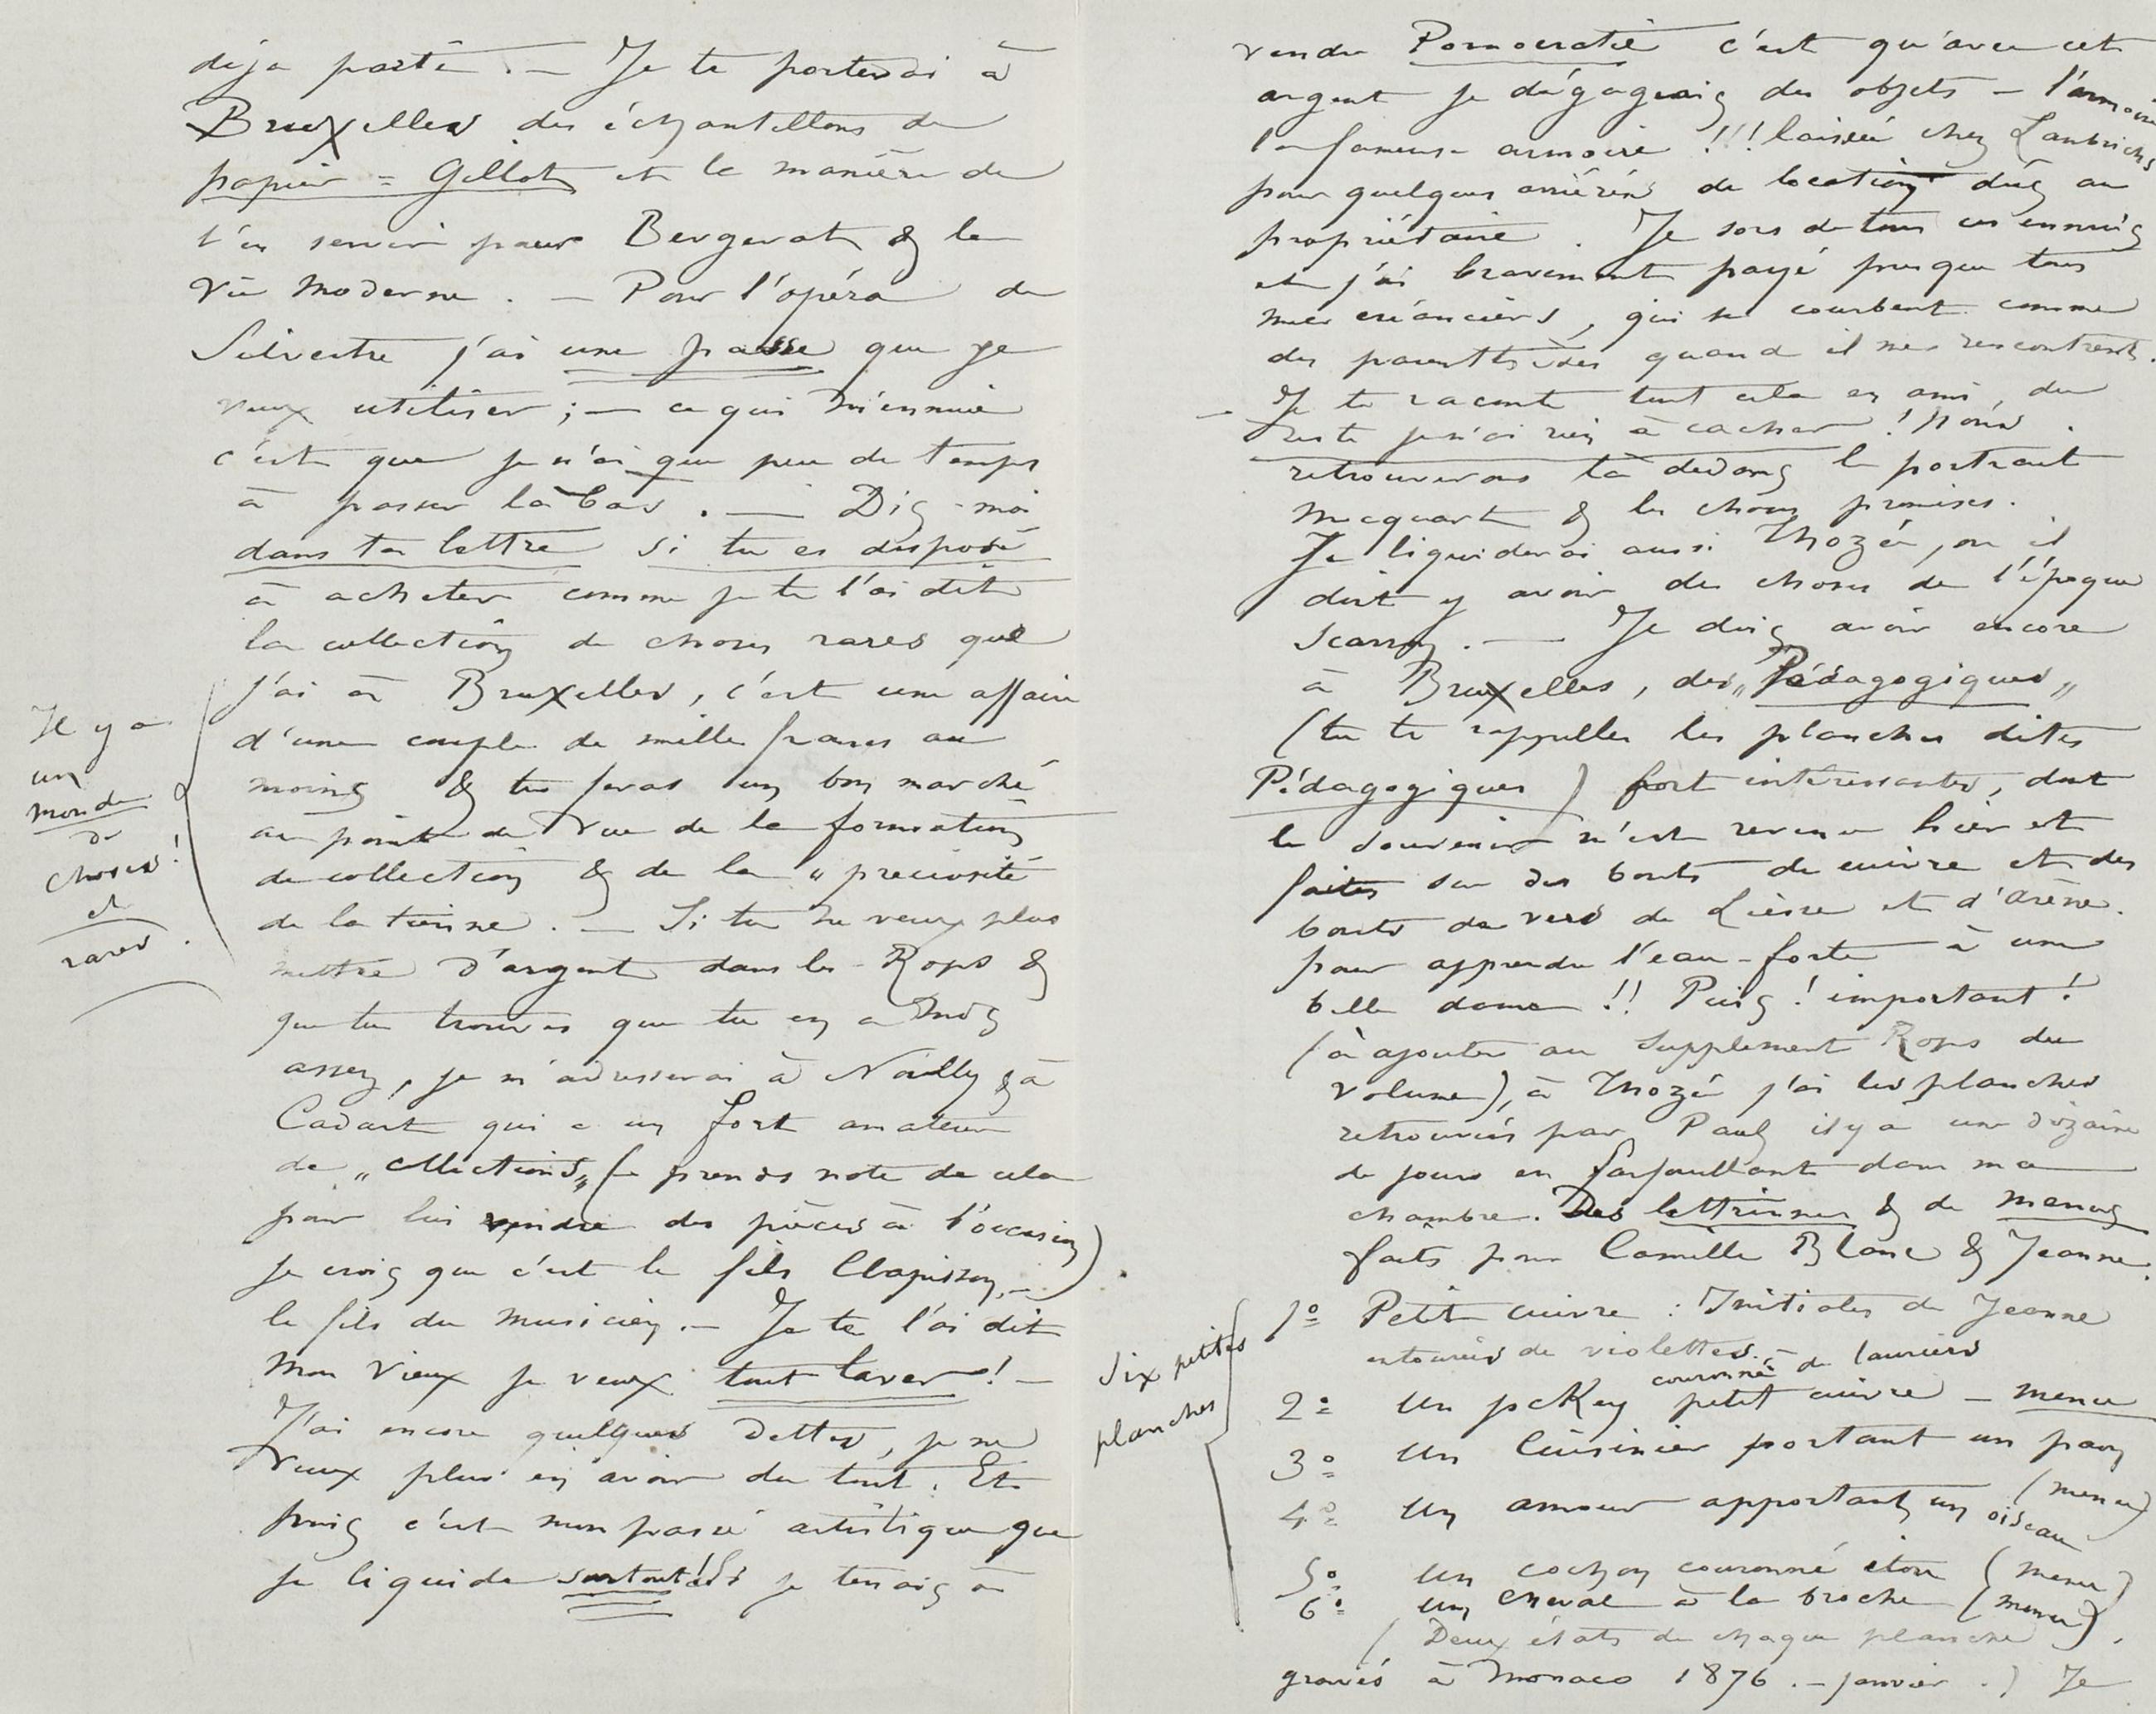 déja parti. — Je te porterai à
Bruxelles des échantillons de
papier = Gillot et la manière de
t'en servir pour Bergerat & la
Vie Moderne. — Pour l'opéra de
Silvestre j'ai une passe que je
veux utiliser ; — ce qui m'ennuie
c'est que je n'ai que peu de temps
à passer là bas. — Dis-moi
dans ta lettre si tu es disposé
à acheter comme je te l'ai dit
la collection de choses rares que
j'ai à Bruxelles, c'est une affaire
d'une couple de mille francs au
moins & tu feras un bon marché
au point de vue de la formation
de collection & de la „ preciosité
de la tienne. — Si tu ne veux plus
mettre d'argent dans les Rops &
que tu trouves que tu en a
assez, je m'adresserai à Noilly & à
Cadart qui a un fort amateur
de „ collections „ (je prends note de cela
pour lui vendre des pièces à l'occasion)
je crois que c'est le fils Clapisson, —
le fils du musicien. — Je te l'ai dit
mon Vieux je veux tout laver ! —
J'ai encore quelques dettes, je ne
veux plus en avoir du tout. Et
puis c'est mon passé artistique que
je liquide surtout ! Si je tenais à
Il y a
un
monde
de
choses !
et
rares.
vendre Pornocratie c'est qu'avec cet
argent je dégageais des objets — l'armoire
la fameuse armoire !!! laissée chez Lambrichs
pour quelques arriérés de location dûs au
propriétaire. Je sors de tous ces ennuis
et j'ai bravement payé presque tous
mes créanciers, qui se courbent comme
des parenthèses quand il me rencontrent.
— Je te raconte tout cela en ami, du
reste je n'ai rien à cacher ! Nous
retrouverons là dedans le portrait
Mcquart & les choses promises.
Je liquiderai aussi Thozée, où il
doit y avoir des choses de l'époque
Scarron. — Je dois avoir encore
à Bruxelles, des „ Pédagogiques „
(tu te rappelles les planches dites
Pédagogiques) fort intéressantes, dont
le souvenir m'est revenu hier et
faites sur des bouts de cuivre et des
bouts de vers de Liesse et d'Arène.
pour apprendre l'eau-forte à une
belle dame !! Puis ! important !
(à ajouter au Supplement Rops du
volume), à Thozée j'ai les planches
retrouvées par Paul il y a une dizaine
de jours en farfouillant dans ma
chambre. Des lettrines & de menus
faits pour Camille Blanc & Jeanne.
Six petites
planches
1º Petit cuivre : Initiales de Jeanne
entourées de violettes. —
couronné de lauriers
2º Un jcKey petit cuivre — menu
3º Un Cuisinier portant un paon
(menu)
4º Un amour apportant un oiseau
5º Un cochon couronné itou (menu)
6º Un cheval à la broche (menu)
(Deux états de chaque planche).
gravés à Monaco 1876. — janvier .) Je